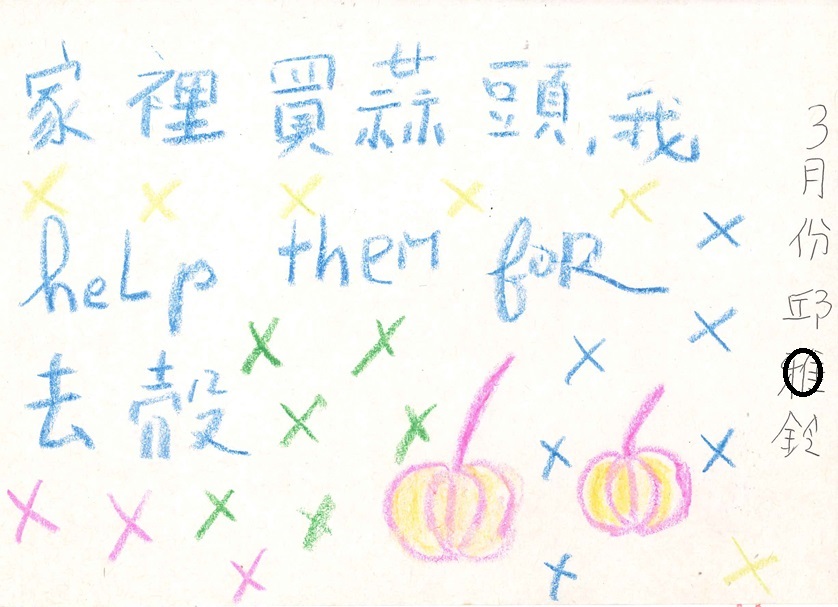 家裡買蒜頭,我
help them for
去殼
3月份邱雅鈴